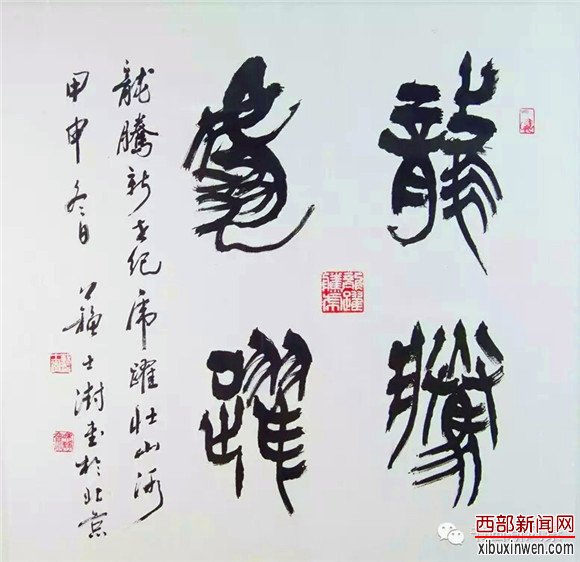 龍騰
虎躍
龍騰新世紀虎躍壯山河
甲申冬日蘇士澍書於北京
龍騰虎躍
西部新闻网
xibuxinwen.com